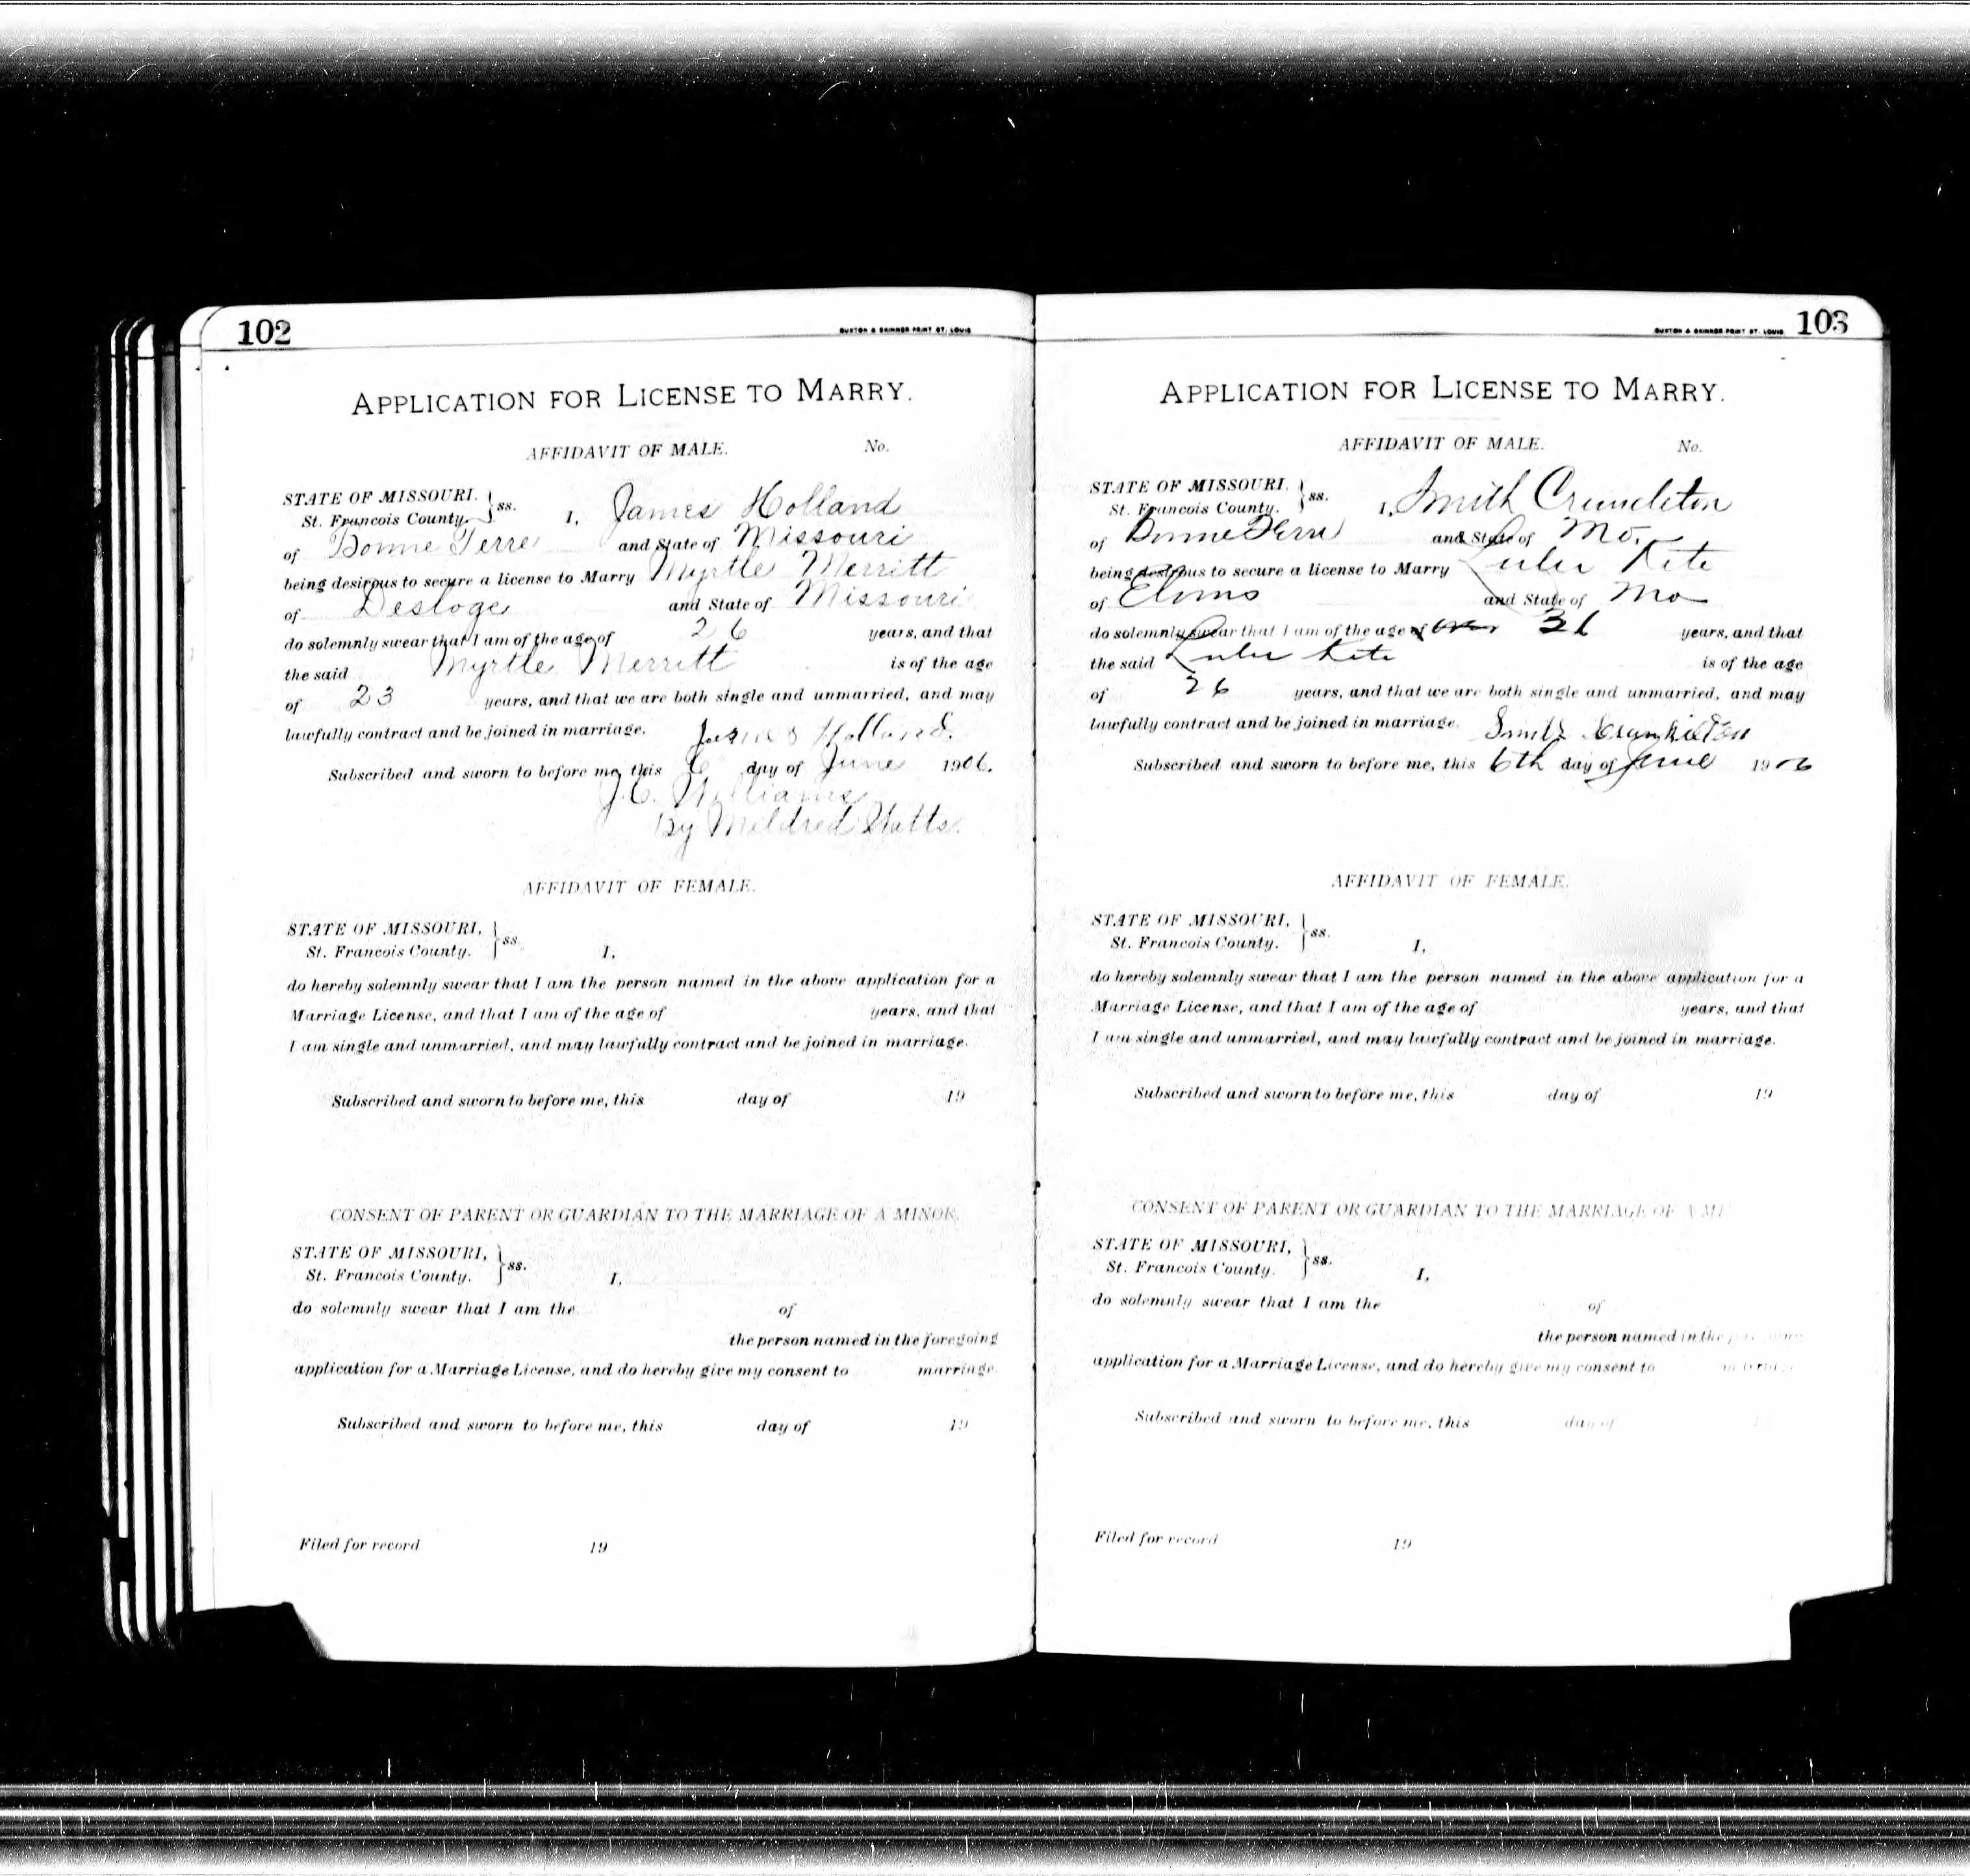 102
BUXTON & SKINNER PRINT ST. LOUIS
APPLICATION FOR LICENSE TO MARRY.
AFFIDAVIT OF MALE. No.
STATE OF MISSOURI. } ss.
St. Francois County. I, James Holland
of Bonne Terre and State of Missouri
being desirous to secure a license to Marry Myrtle Merritt
of Desloge and State of Missouri
do solemnly swear that I am of the age of 26 years, and that
the said Myrtle Merritt is of the age
of 23 years, and that we are both single and unmarried, and may
lawfully contract and be joined in marriage. James Holland.
Subscribed and sworn to before me, this 6 day of June 1906.
J.C. Williams
By Mildred
AFFIDAVIT OF FEMALE.
STATE OF MISSOURI, } ss
St. Francois County. I,
do hereby solemnly swear that I am the person named in the above application for a
Marriage License, and that I am of the age of years, and that
I am single and unmarried, and may lawfully contract and be joined in marriage.
Subscribed and sworn to before me, this day of 19
CONSENT OF PARENT OR GUARDIAN TO THE MARRIAGE OF A MINOR.
STATE OF MISSOURI, } ss.
St. Francois County. I,
do solemnly swear that I am the of
the person named in the foregoing
application for a Marriage License, and do hereby give my consent to marriage.
Subscribed and sworn to before me, this day of 19
Filed for record 19
BUXTON & SKINNER PRINT ST. LOUIS 103
APPLICATION FOR LICENSE TO MARRY.
AFFIDAVIT OF MALE. No.
STATE OF MISSOURI. } ss.
St. Francois County. I, Smith Crumleton
of Bonne Terre and State of Mo.
being desirous to secure a license to Marry Lulu Kite
of Elvins and State of Mo
do solemnly swear that I am of the age of over years, and that
the said Lulu Kite is of the age
of 26 years, and that we are both single and unmarried, and may
lawfully contract and be joined in marriage. Smith
Subscribed and sworn to before me, this 6th day of June 1906
AFFIDAVIT OF FEMALE.
STATE OF MISSOURI, } ss.
St. Francois County. I,
do hereby solemnly swear that I am the person named in the above application for a
Marriage License, and that I am of the age of years, and that
I am single and unmarried, and may lawfully contract and be joined in marriage.
Subscribed and sworn to before me, this day of 19
CONSENT OF PARENT OR GUARDIAN TO THE MARRIAGE OF A MI
STATE OF MISSOURI, } ss.
St. Francois County. I,
do solemnly swear that I am the of
the person named in the
application for a Marriage License, and do hereby give my consent to
Subscribed and sworn to before me, this day of
Filed for record 19